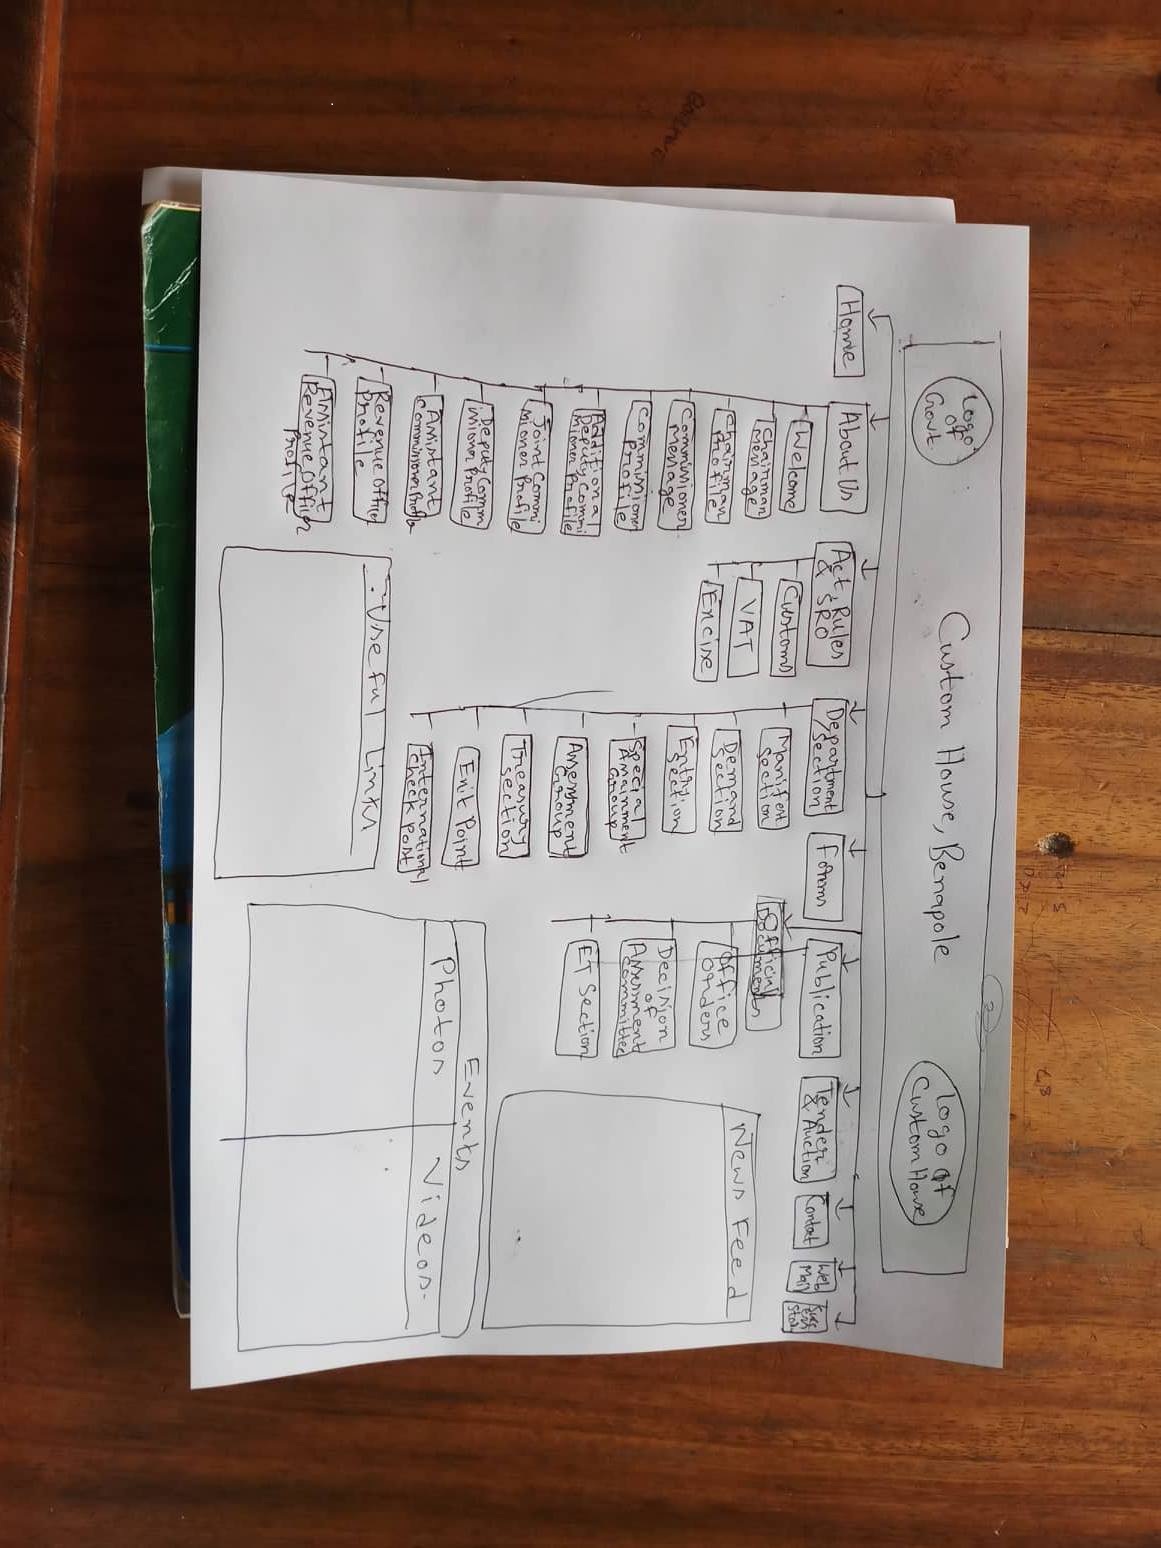 Logo
of
Govt.
Custom House, Benapole
2
Logo of
Custom House
Home
About Us
Welcome
Chairman
Message
Chairman
Profile
Commissioner
Message
Commissioner
Profile
Additional
Deputy Commi
ssioner Profile
Joint Commi
ssioner Profile
Deputy Comm
issioner Profile
Assistant
Commissioner Profile
Revenue Officer
Profile
Assistant
Revenue Officer
Profile
Act, Rules
& SRO
Customs
VAT
Excise
Department
/Section
Manifest
Section
Demand
Section
Entry
Section
Special
Group
Assessment
Group
Treasury
Section
Exit Point
International
Check Point
Forms
Publication
Official
Documents
Office
Orders
Decision
of
Assessment
Committee
ET Section
Tender
& Auction
Contact
Web
Mail
News Feed
:Useful Links
Events
Photos
Videos.